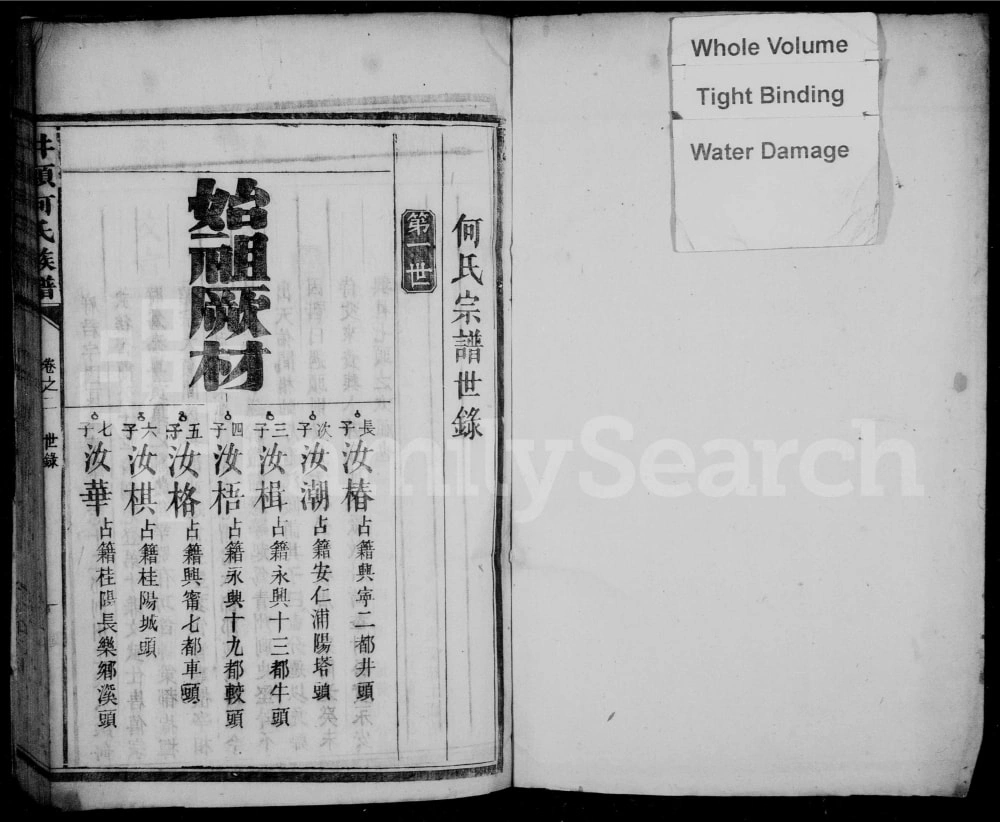 Whole Volume
Tight Binding
Water Damage
何氏宗譜世錄
第一世
始祖厥材
長子汝椿占籍興寧二都井頭
次子汝潮占籍安仁浦陽塔頭
三子汝楫占籍永興十三都牛頭
四子汝梧占籍永興十九都較頭
五子汝格占籍興甯七都車頭
六子汝棋占籍桂陽城頭
七子汝華占籍桂陽長樂鄉溪頭
井頭何氏族譜
卷之二
世錄
FamilySearch